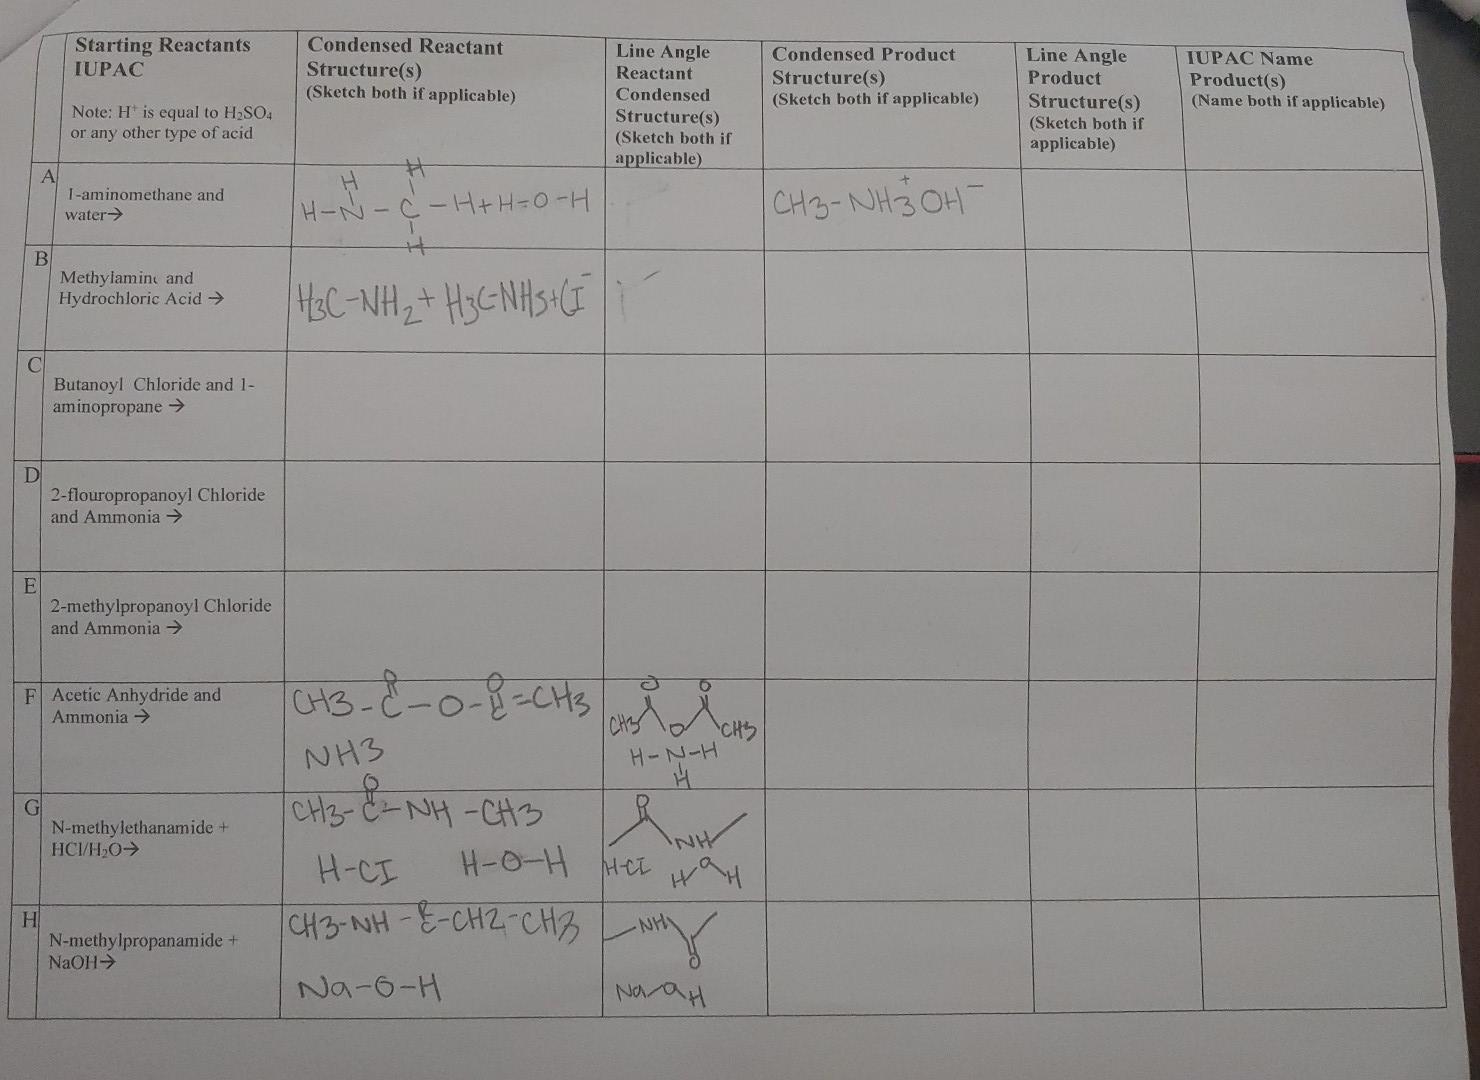 Starting Reactants
IUPAC
Note: H⁺ is equal to H₂SO₄
or any other type of acid
Condensed Reactant
Structure(s)
(Sketch both if applicable)
Line Angle
Reactant
Condensed
Structure(s)
(Sketch both if
applicable)
Condensed Product
Structure(s)
(Sketch both if applicable)
Line Angle
Product
Structure(s)
(Sketch both if
applicable)
IUPAC Name
Product(s)
(Name both if applicable)
A
1-aminomethane and
water→
H H
H-N-C-H+H-O-H
H
CH3-NH3⁺OH⁻
B
Methylamine and
Hydrochloric Acid →
H3C-NH2+H3C-NH3+Cl⁻
C
Butanoyl Chloride and 1-
aminopropane →
D
2-flouropropanoyl Chloride
and Ammonia →
E
2-methylpropanoyl Chloride
and Ammonia →
F
Acetic Anhydride and
Ammonia →
O O
CH3-C-O-C=CH3
NH3
O O
CH3 O CH3
H-N-H
H
G
N-methylethanamide +
HCl/H₂O→
O
CH3-C-NH-CH3
H-Cl H-O-H
O
NH
H-Cl H O H
H
N-methylpropanamide +
NaOH→
O
CH3-NH-C-CH2-CH3
Na-O-H
NH
O
Na O H